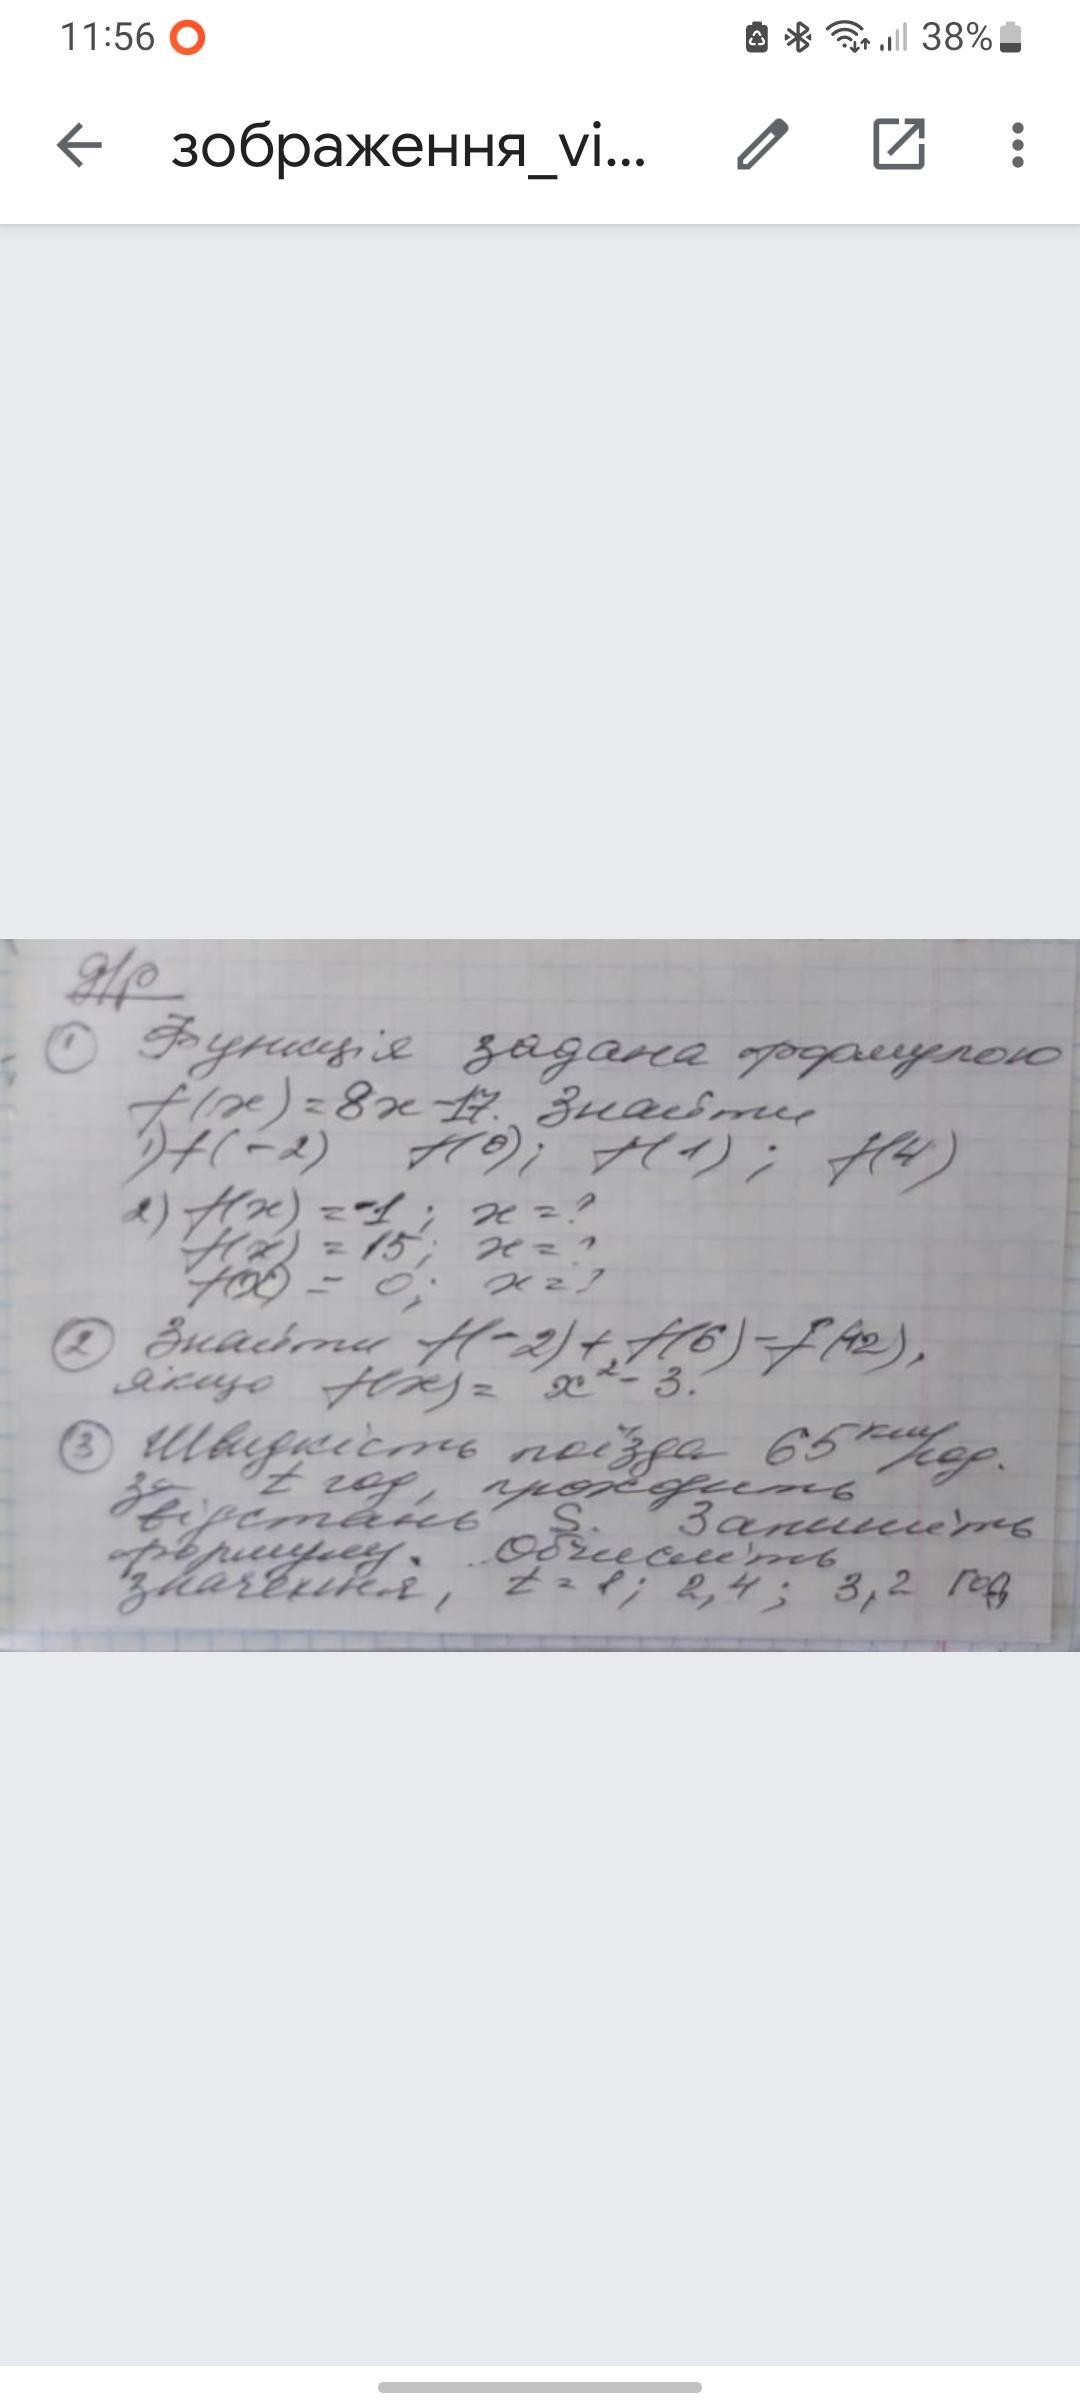 11:56 38%
зображення_vi...
Д/р
① Функція задана формулою
f(x)=8x-17. Знайти
1) f(-2) f(0); f(1); f(4)
2) f(x) = -1; x=?
f(x) = 15; x=?
f(x) = 0; x=?
② Знайти f(-2)+f(6)-f(12),
якщо f(x)= x²-3.
③ Швидкість поїзда 65 км/год.
за t год, проходить
відстань S. Запишіть
формулу. Обчисліть
значення, t= 1; 2,4; 3,2 год